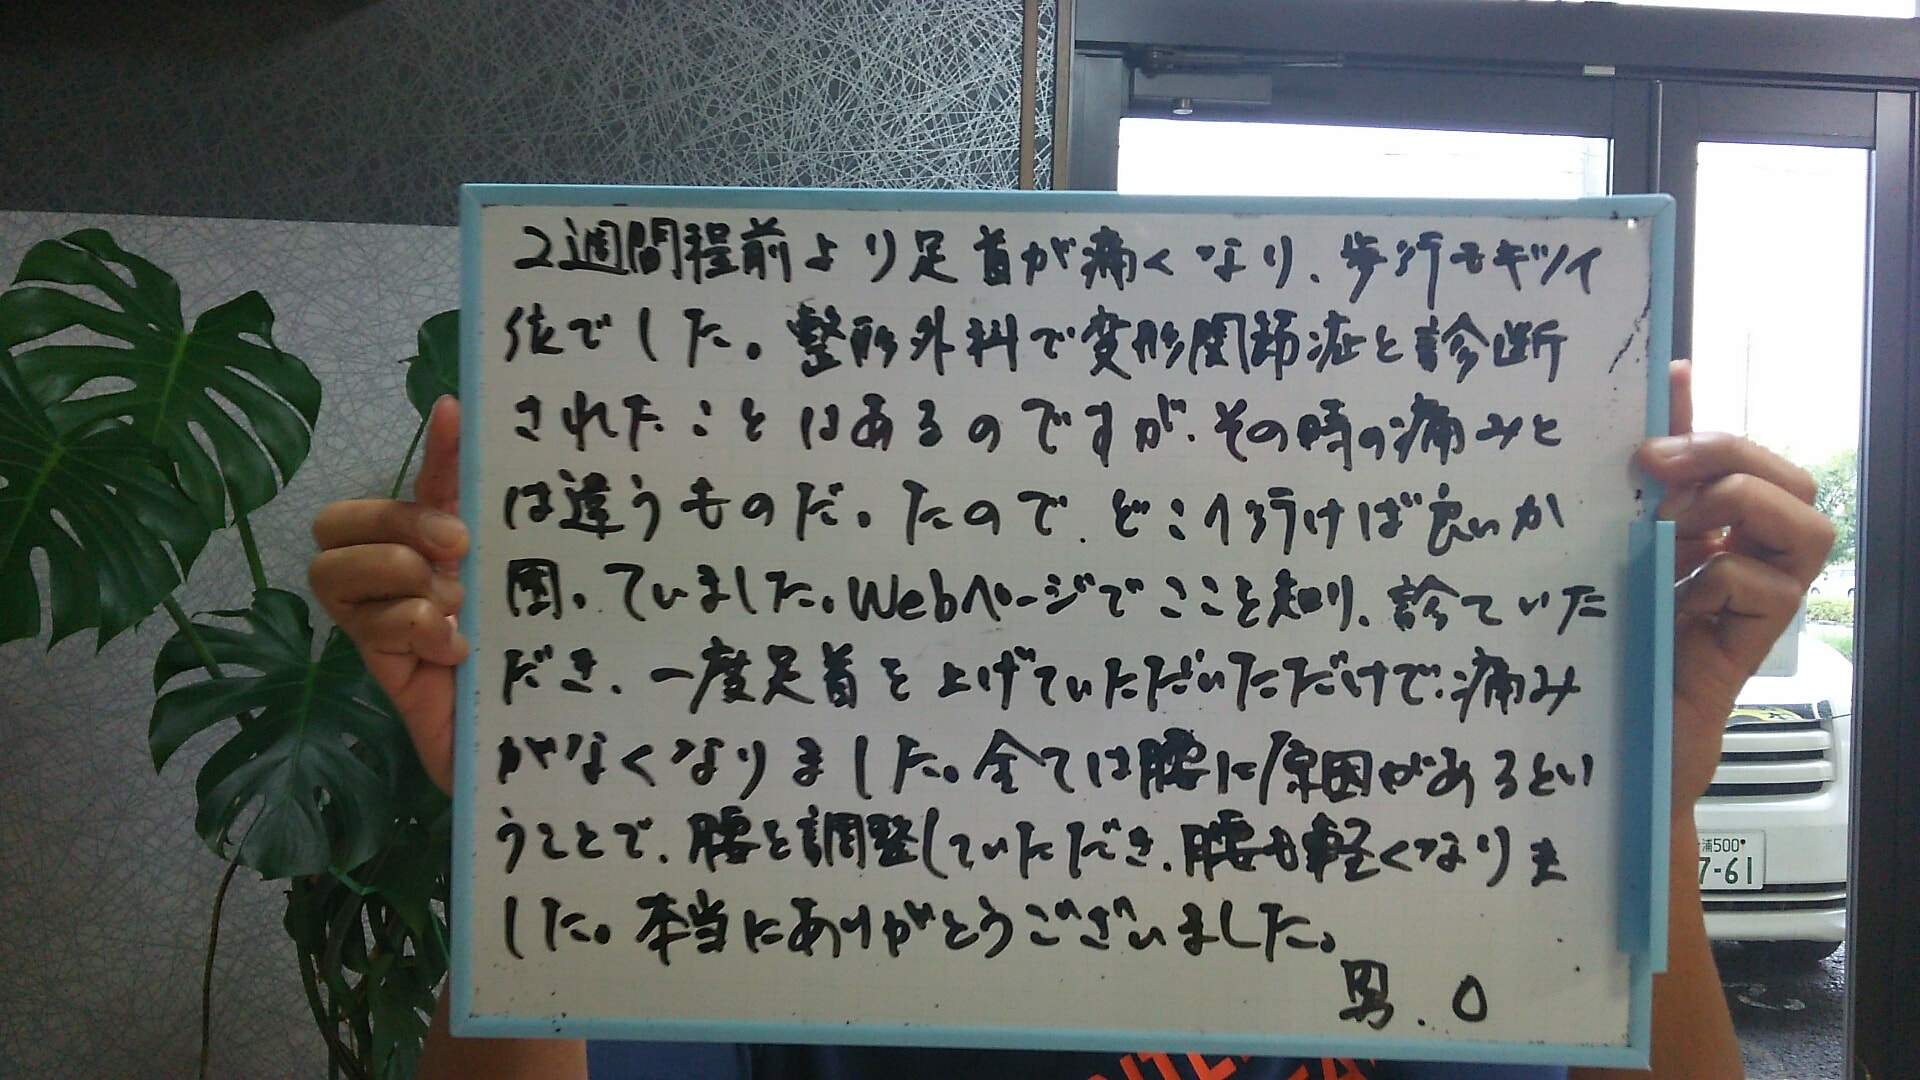 2週間程前より足首が痛くなり、歩行もキツイ
位でした。整形外科で変形関節症と診断
されたことはあるのですが、その時の痛みと
は違うものだったので、どこへ行けば良いか
困っていました。Webページでここを知り、診ていた
だき、一度足首を上げていただいただけで、痛み
がなくなりました。全ては腰に原因があるとい
うことで、腰を調整していただき、腰も軽くなりま
した。本当にありがとうございました。
男.O
500
7-61